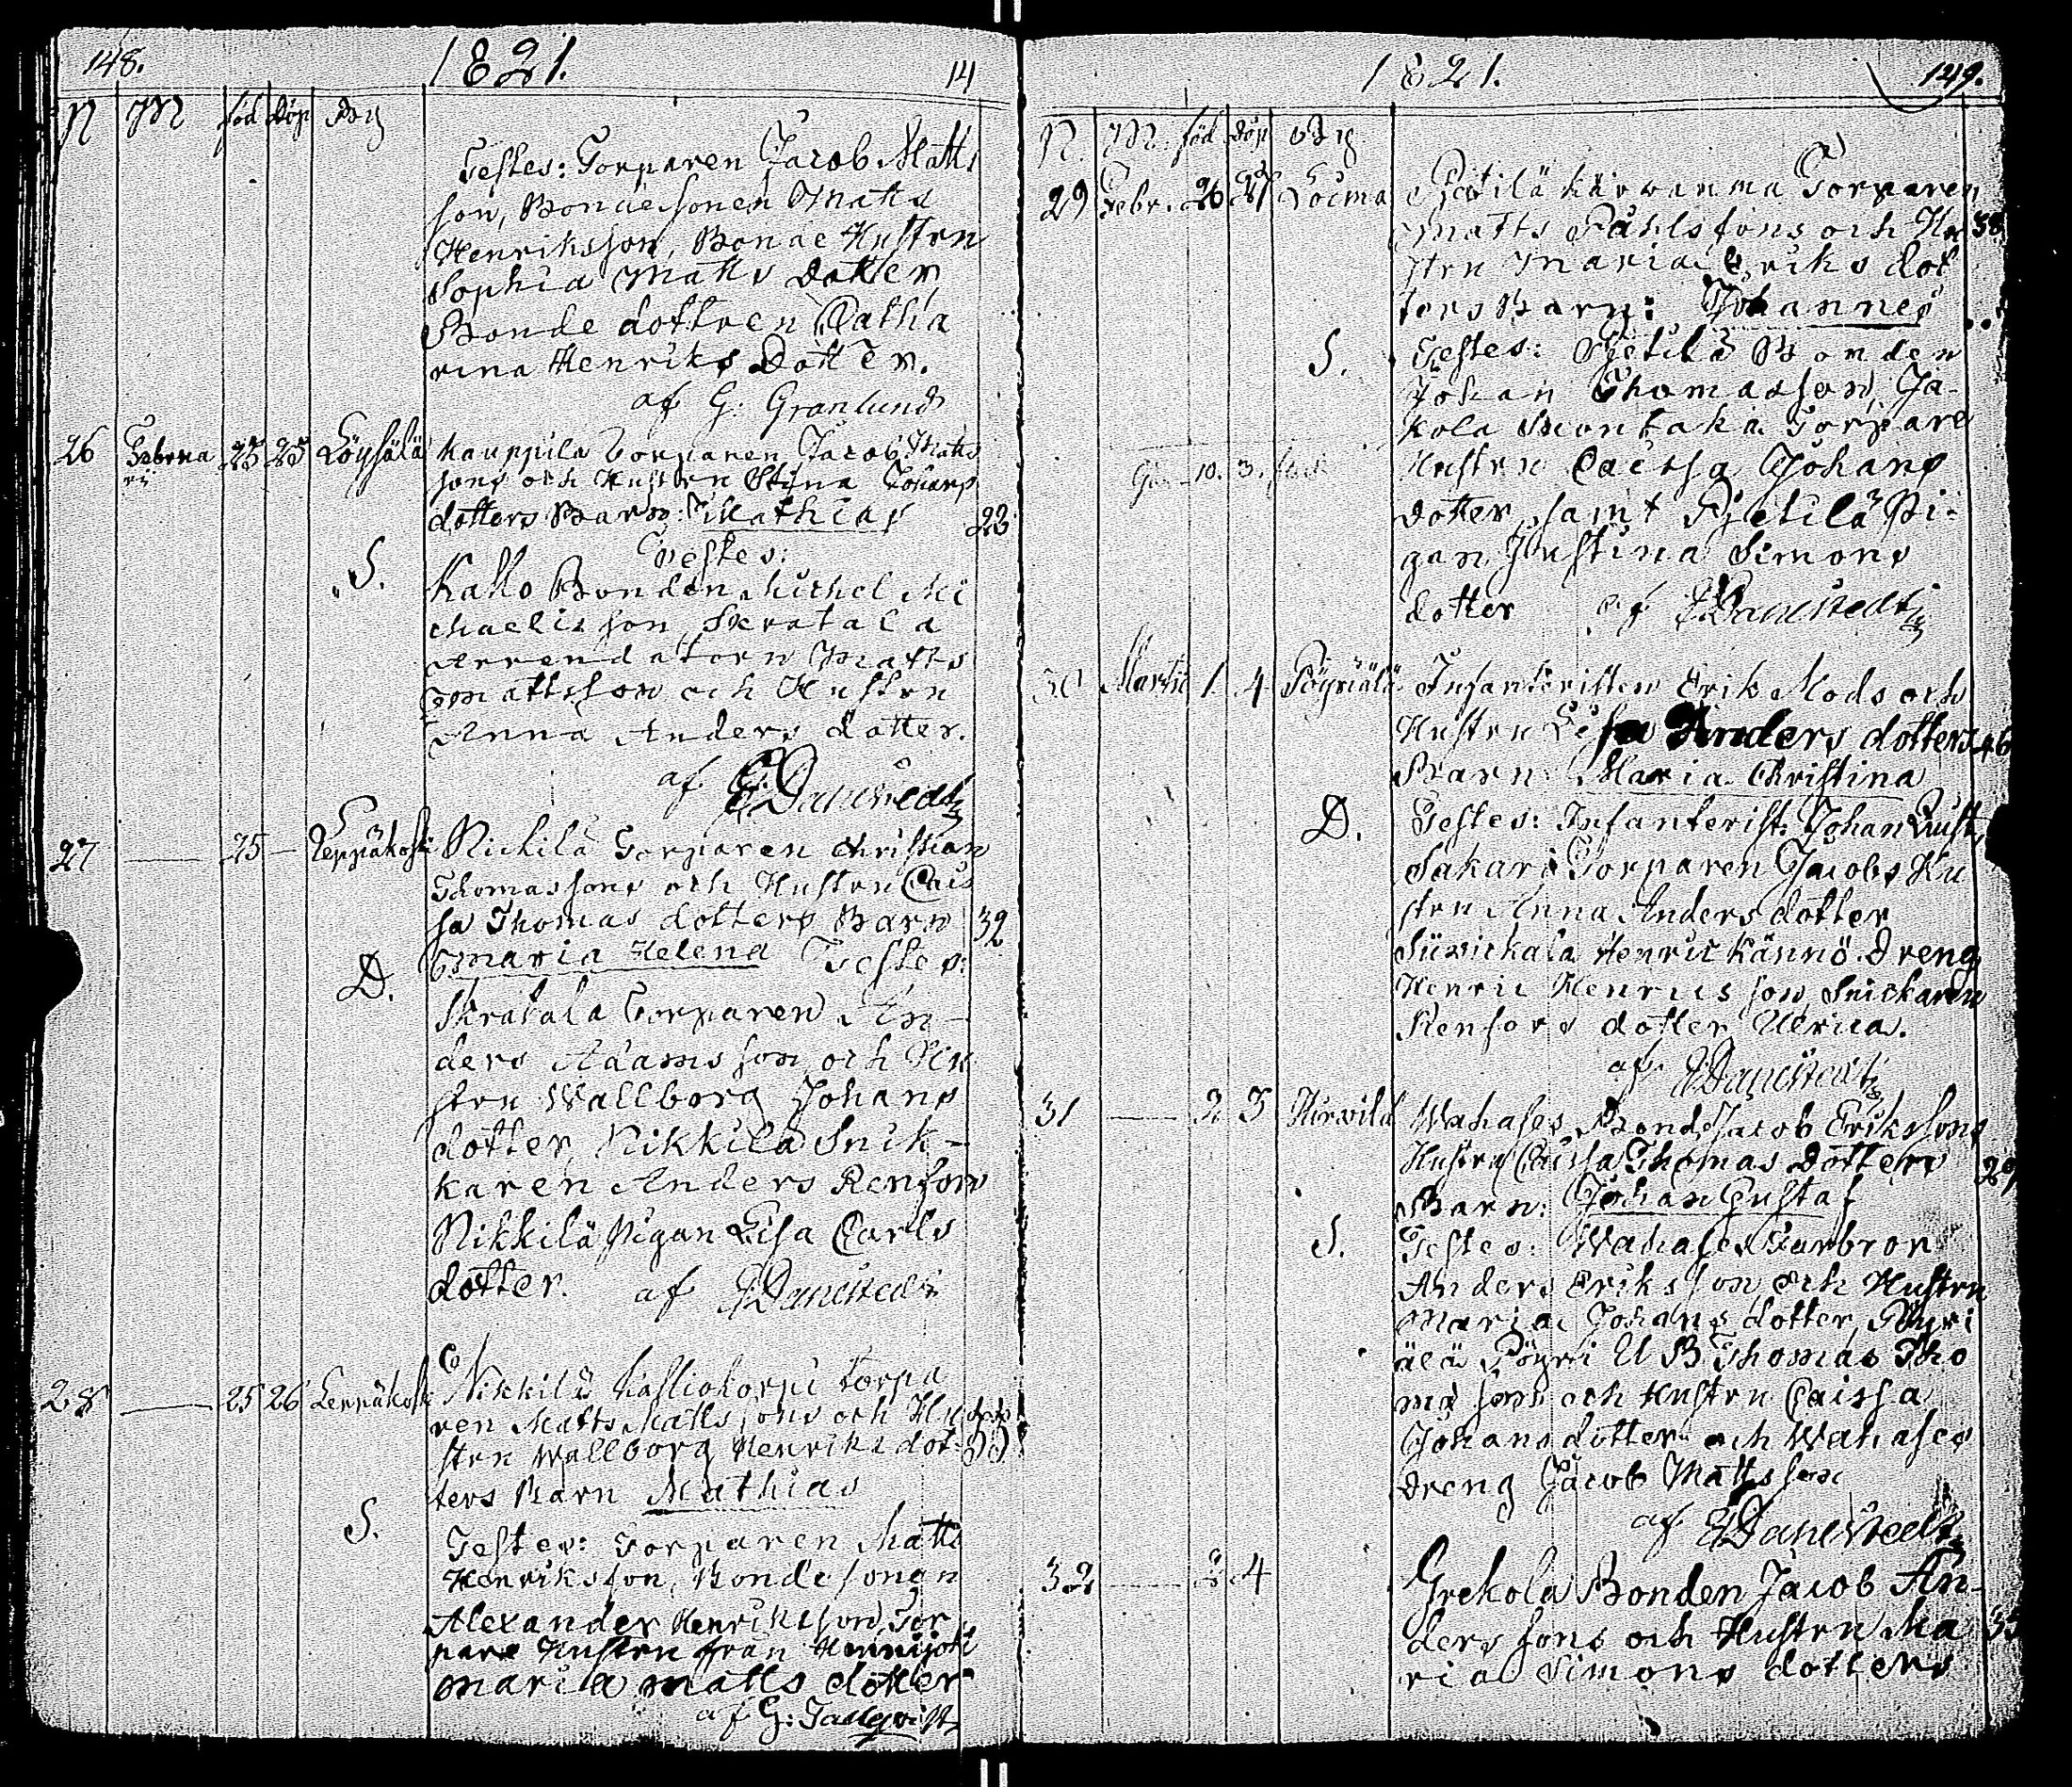 148. 1821. 14
N M född Döp By
Testes: Torparen Jacob Matts
son, Bondesonen Matts
Henriksson, Bonde Hustrun
Sophia Matts Dotter
Bonde dottren Catha
rina Henriks Dotter.
af G: Granlund
26 Februa
ri 23 25 Löysälä Kauppila Torparen Jacob Matts
sons och Hustrun Stina Johans
dotters Barn: Mathias 23
Testes:
S. Kallo Bonden Michel Mi
chaelisson, Skratala
Arrendatorn Matts
Mattsson och Hustrun
Anna Anders dotter.
af E Danstedt
27 — 25 — Leppäkoski Nickilä Torparen Christian
Thomassons och Hustrun Cais
sa Thomas dotters Barn 32
D. Maria Helena Testes:
Skratala Torparen An-
ders Adamsson, och Hu
strn Wallborg Johans
dotter, Nikkilä Snik-
karen Anders Renfors
Nikkilä Pigan Lisa Carls
dotter. af
28 — 25 26 Leppäkoski Nikkilä Kalliokorpi Torpa
ren Matts Mattssons och Hu
strn Wallborg Henriks dot-
ters Barn Mathias
S. Testes: Torparen Matts
Henriksson, Bonde sonen
Alexander Henriksson, Tor
pare Hustrun från Hennijoki
Maria Matts dotter
af G: Tallqvist
1821. 149.
N. M. född Döp By
29 Febr. 26 27 Socima Pietilä Torparen
Matts Påhlssons och Hu 38
strn Maria Eriks dot
ters Barn: Johannes
S. Testes: Pietilä Bonden
Johan Thomasson, Ja-
kola Torpare
Hustrn Caissa Johans
dotter, samt Pietilä Pi-
gan Justina Simons
dotter af
30 Martii 1. 4 Pöyriälä Infanteristen Erik Mods och
Hustrn Lisa Anders dotters 46
Barn: Maria Christina
D. Testes: Infanterist. Johan
Sakari Torparen Jacobs Hu
strn Anna Anders dotter
Henric Kännö. Dreng
Henric Henricsson, Snickaren
Renfors dotter Ulrica.
af
31 — 2 3 Hurvila Wahases Bond. Jacob Erikssons
Hustru Caissa Thomas Dotters 29
Barn: Johan Gustaf
S. Testes: Wahases Farbror
Anders Eriksson, och Hustrn
Maria Johans dotter, Pöyri
älä Pöyri U B Thomas Tho
mæson och Hustrn Caissa
Johans dotter och Wahases
Dreng Jacob Mattsson
af
32 — 3 4 Grekola Bonden Jacob An-
ders sons och Hustrn Ma 33
ria Simons dotters